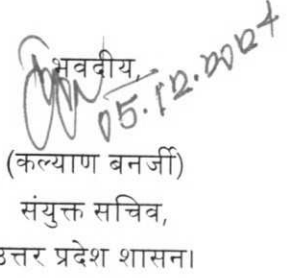 भवदीय,
05.12.2024
(कल्याण बनर्जी)
संयुक्त सचिव,
उत्तर प्रदेश शासन।